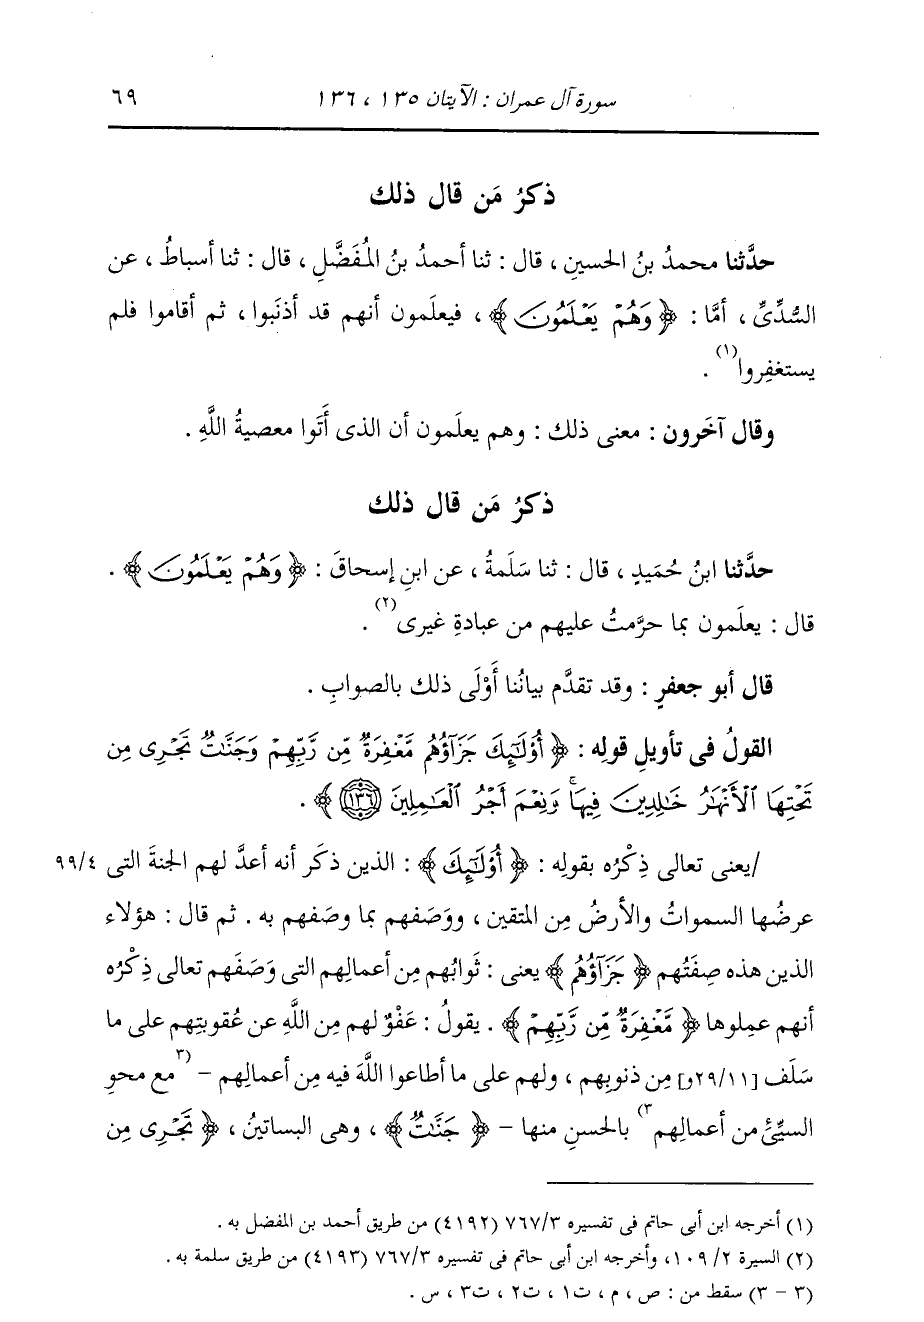 سورة آل عمران : الآيتان ١٣٥ ، ١٣٦
٦٩
ذكرُ مَن قال ذلك
حدَّثنا محمدُ بنُ الحسينِ ، قال : ثنا أحمدُ بنُ المُفَضَّلِ ، قال : ثنا أسباطُ ، عن
السُّدِّىِّ ، أمَّا : ﴿ وَهُمْ يَعْلَمُونَ ﴾ ، فيعلَمون أنهم قد أذنَبوا ، ثم أقاموا فلم
يستغفِروا(١) .
وقال آخَرون : معنى ذلك : وهم يعلَمون أن الذى أَتَوا معصيةُ اللَّهِ .
ذكرُ مَن قال ذلك
حدَّثنا ابنُ حُمَيدٍ ، قال : ثنا سَلَمةُ ، عن ابنِ إسحاقَ : ﴿ وَهُمْ يَعْلَمُونَ ﴾ .
قال : يعلَمون بما حرَّمتُ عليهم من عبادةِ غيرى(٢) .
قال أبو جعفرٍ : وقد تقدَّم بيانُنا أَوْلَى ذلك بالصوابِ .
القولُ فى تأويلِ قولِه : ﴿ أُوْلَٰٓئِكَ جَزَآؤُهُم مَّغْفِرَةٌ مِّن رَّبِّهِمْ وَجَنَّٰتٌ تَجْرِى مِن
تَحْتِهَا ٱلْأَنْهَٰرُ خَٰلِدِينَ فِيهَا ۚ وَنِعْمَ أَجْرُ ٱلْعَٰمِلِينَ ١٣٦ ﴾ .
/يعنى تعالى ذِكْرُه بقولِه : ﴿ أُوْلَٰٓئِكَ ﴾ : الذين ذكَر أنه أعدَّ لهم الجنةَ التى ٩٩/٤
عرضُها السمواتُ والأرضُ مِن المتقين ، ووَصَفهم بما وصَفهم به . ثم قال : هؤلاء
الذين هذه صِفَتُهم ﴿ جَزَآؤُهُم ﴾ يعنى : ثَوابُهم مِن أعمالِهم التى وَصَفَهم تعالى ذِكْرُه
أنهم عمِلوها ﴿ مَّغْفِرَةٌ مِّن رَّبِّهِمْ ﴾ . يقولُ : عَفْوٌ لهم مِن اللَّهِ عن عُقوبتِهم على ما
سَلَف [٢٩/١١و] مِن ذنوبِهم ، ولهم على ما أطاعوا اللَّهَ فيه مِن أعمالِهم - (٣مع محوِ
السيِّئِ من أعمالِهم٣) بالحسنِ منها - ﴿ جَنَّٰتٌ ﴾ ، وهى البساتينُ ، ﴿ تَجْرِى مِن
(١) أخرجه ابن أبى حاتم فى تفسيره ٧٦٧/٣ (٤١٩٢) من طريق أحمد بن المفضل به .
(٢) السيرة ١٠٩/٢ ، وأخرجه ابن أبى حاتم فى تفسيره ٧٦٧/٣ (٤١٩٣) من طريق سلمة به .
(٣ - ٣) سقط من : ص ، م ، ت١ ، ت٢ ، ت٣ ، س .